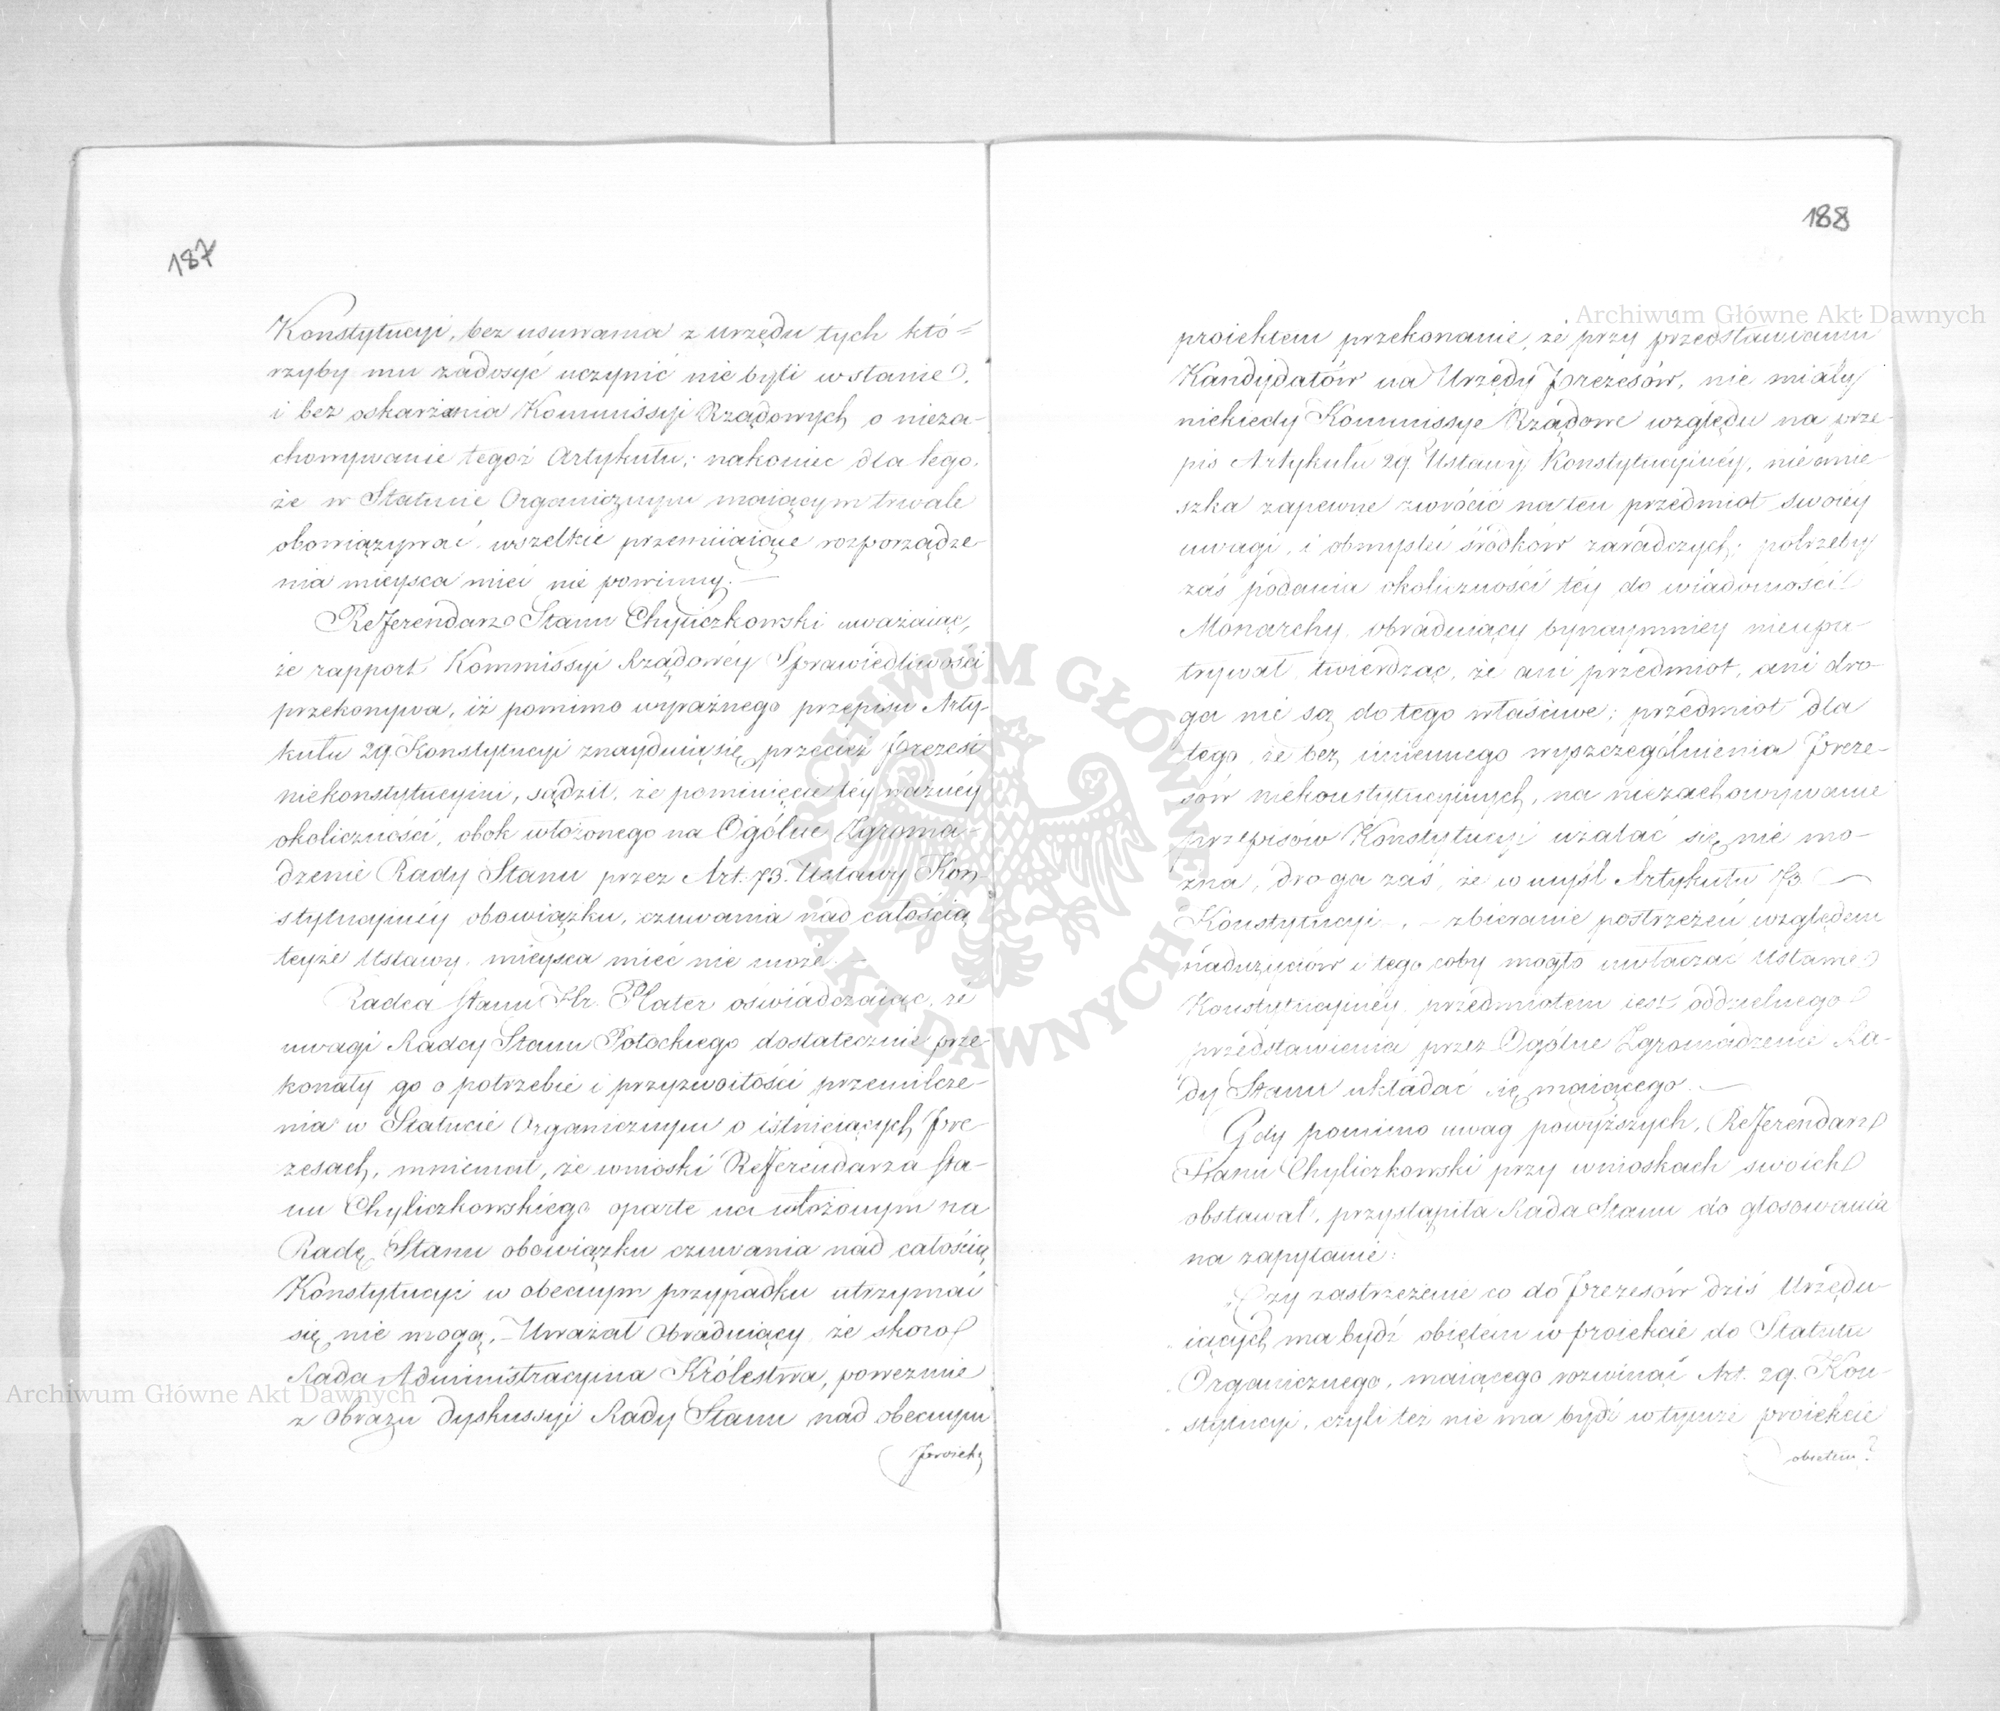 187
Konstytucyi, bez usuwania z urzędu tych któ=
rzyby mu zadosyć uczynić nie byli w stanie,
i bez oskarżania Kommissyi Rządowych o nieza-
chowywanie tegoż Artykułu; nakoniec dla tego,
że w Statucie Organicznym maiącym trwale
obowiązywać wszelkie przemiiaiące rozporządze-
nia mieysca mieć nie powinny. —
Refferendarz Stanu Chyliczkowski uważaiąc,
że rapport Kommissyi Rządowéy Sprawiedliwości
przekonywa, iż pomimo wyraźnego przepisu Arty-
kułu 29 Konstytucyi znayduią się przecież Prezesi
niekonstytucyini, sądził, że pominięcie téy ważnéy
okoliczności, obok włożonego na Ogólne Zgroma-
dzenie Rady Stanu przez Art. 73. Ustawy Kon-
stytucyinéy obowiązku, czuwania nad całością
teyże Ustawy, mieysca mieć nie może. —
Radca Stanu Hr. Plater oświadczaiąc, że
uwagi Radcy Stanu Potockiego dostatecznie prze-
konały go o potrzebie i przyzwoitości przemilcze-
nia w Statucie Organicznym o istnieiących Pre-
zesach, mniemał, że wnioski Refferendarza Sta-
nu Chyliczkowskiego oparte na włożonym na
Radę Stanu obowiązku czuwania nad całością
Konstytucyi w obecnym przypadku utrzymać
się nie mogą, — Uważał Obraduiący, że skoro
Rada Administracyina Królestwa, poweźmie
z Obrazu dyskussyi Rady Stanu nad obecnym
Proiek
188
proiektem przekonanie, że przy przedstawianiu
Kandydatów na Urzędy Prezesów, nie miały
niekiedy Kommissye Rządowe względu na prze-
pis Artykułu 29. Ustawy Konstytucyinéy, nieomie
szka zapewne zwrócić na ten przedmiot swoiéy
uwagi, i obmyśleć środków zaradczych; potrzeby
zaś podania okoliczności téy do wiadomości
Monarchy, obraduiący bynaymniey nieupa-
trywał, twierdząc, że ani przedmiot, ani dro-
ga nie są do tego właściwe; przedmiot dla
tego, że bez imiennego wyszczególnienia Preze-
sów niekonstytucyinych, na niezachowywanie
przepisów Konstytucyi użalać się nie mo-
żna, droga zaś, że w myśl Artykułu 73.
Konstytucyi, — zbieranie postrzeżeń względem
nadużyciów i tego coby mogło uwłaczać Ustawie
Konstytucyinéy, przedmiotem iest oddzielnego
przedstawienia przez Ogólne Zgromadzenie Ra-
dy Stanu układać się maiącego. —
Gdy pomimo uwag powyższych, Refferendarz
Stanu Chyliczkowski przy wnioskach swoich
obstawał, przystąpiła Rada Stanu do głosowania
na zapytanie:
Czy zastrzeżenie co do Prezesów dziś Urzędu
iących ma bydź obiętem w proiekcie do Statutu
Organicznego, maiącego rozwinąć Art. 29. Kon-
stytucyi, czyli też nie ma bydź w tymże proiekcie
obiętem?
Archiwum Główne Akt Dawnych
Archiwum Główne Akt Dawnych
ARCHIWUM GŁÓWNE AKT DAWNYCH